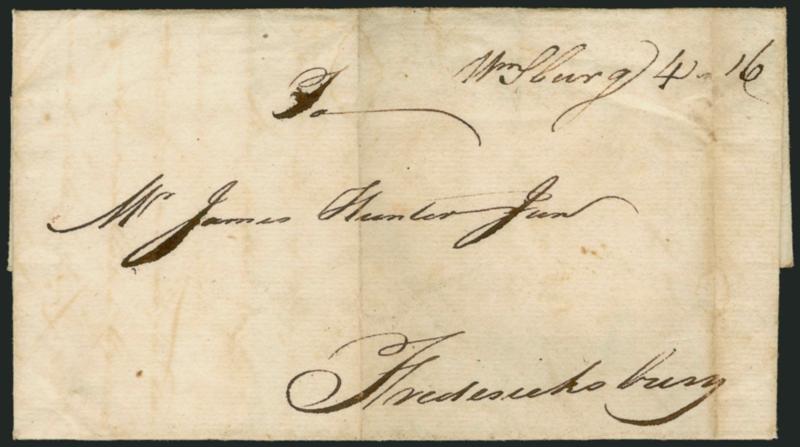 WmsBurg 4 - 16
To
Mr James Hunter Junr
Fredericksburg